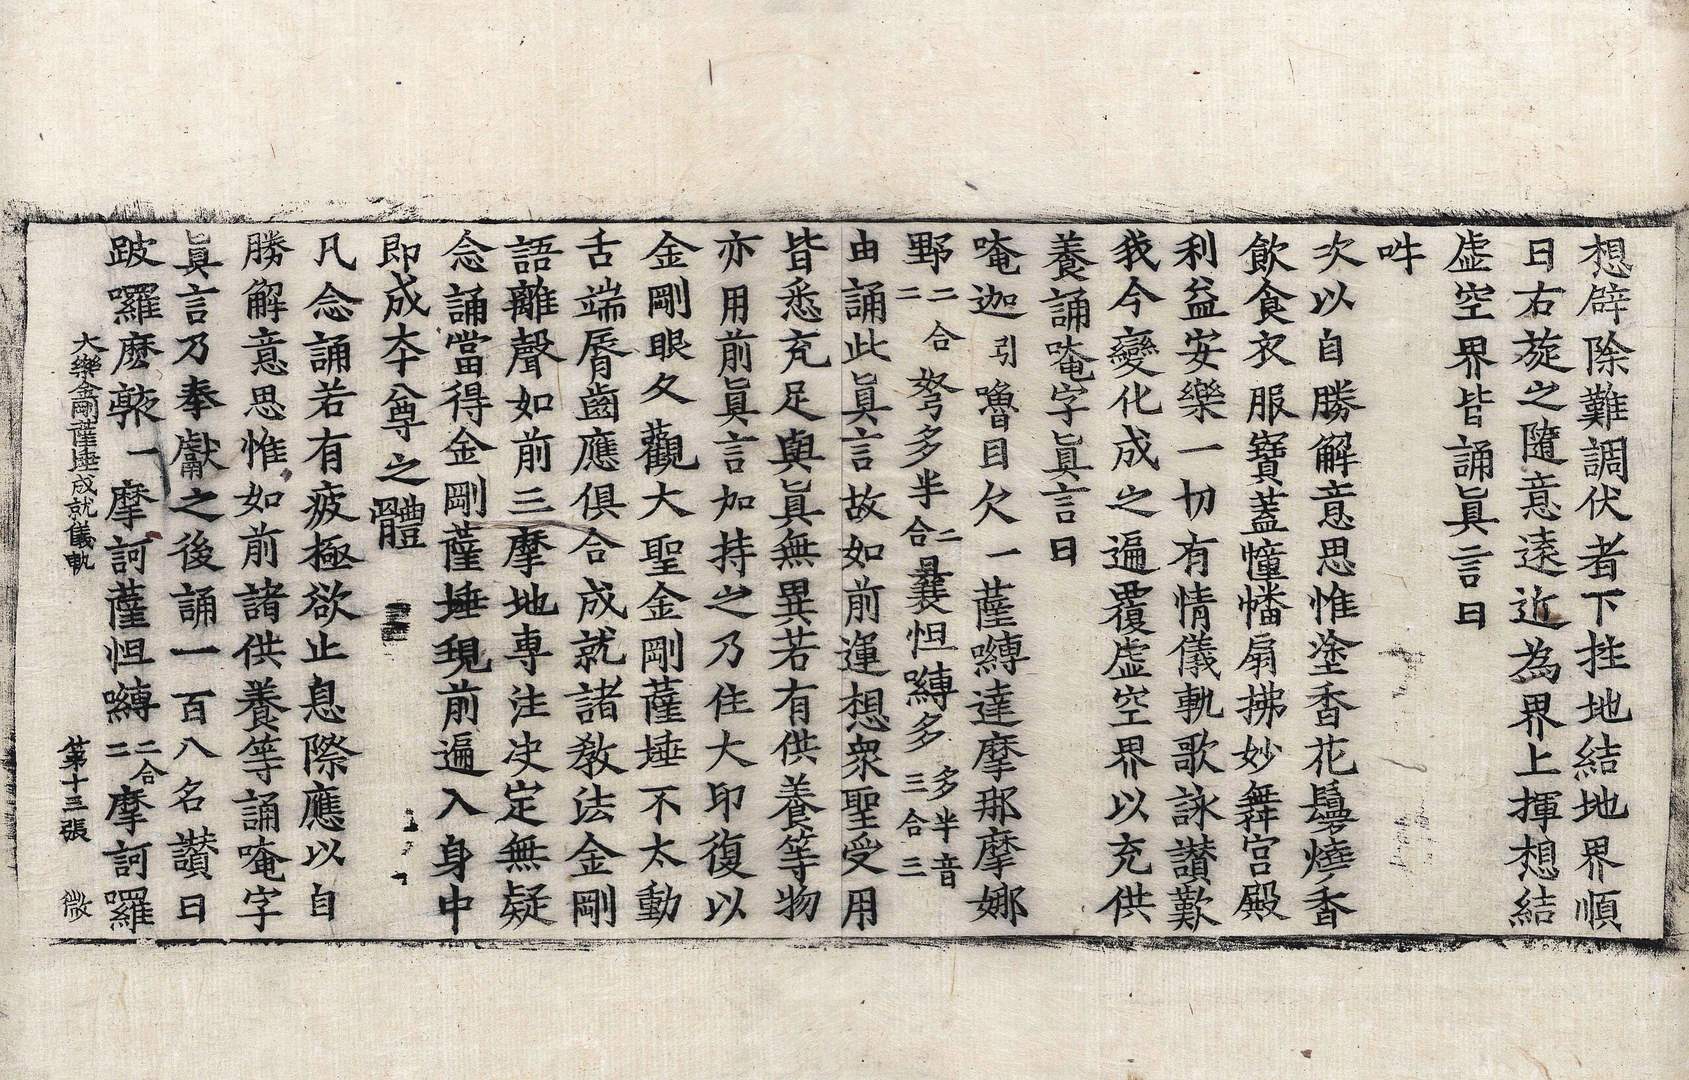 想辟除難調伏者下拄地結地界順
日右旋之隨意遠近為界上揮想結
虛空界皆誦眞言曰
吽
次以自勝解意思惟塗香花鬘燒香
飲食衣服寶蓋幢幡扇拂妙舞宮殿
利益安樂一切有情儀軌歌詠讃歎
我今變化成之遍覆虛空界以充供
養誦唵字眞言曰
唵迦引嚕目欠一薩嚩達摩那摩娜
野二合二弩多半二合曩怛嚩多多半音三合三
由誦此眞言故如前運想衆聖受用
皆悉充足與眞無異若有供養等物
亦用前眞言加持之乃住大印復以
金剛眼久觀大聖金剛薩埵不太動
舌端脣齒應俱合成就諸教法金剛
語離聲如前三摩地專注決定無疑
念誦當得金剛薩埵現前遍入身中
即成夲尊之體
凡念誦若有疲極欲止息際應以自
勝解意思惟如前諸供養等誦唵字
眞言乃奉獻之後誦一百八名讃曰
跛囉麽㰠一摩訶薩怛嚩二合二摩訶囉
大樂金剛薩埵成就儀軌　第十三張　微